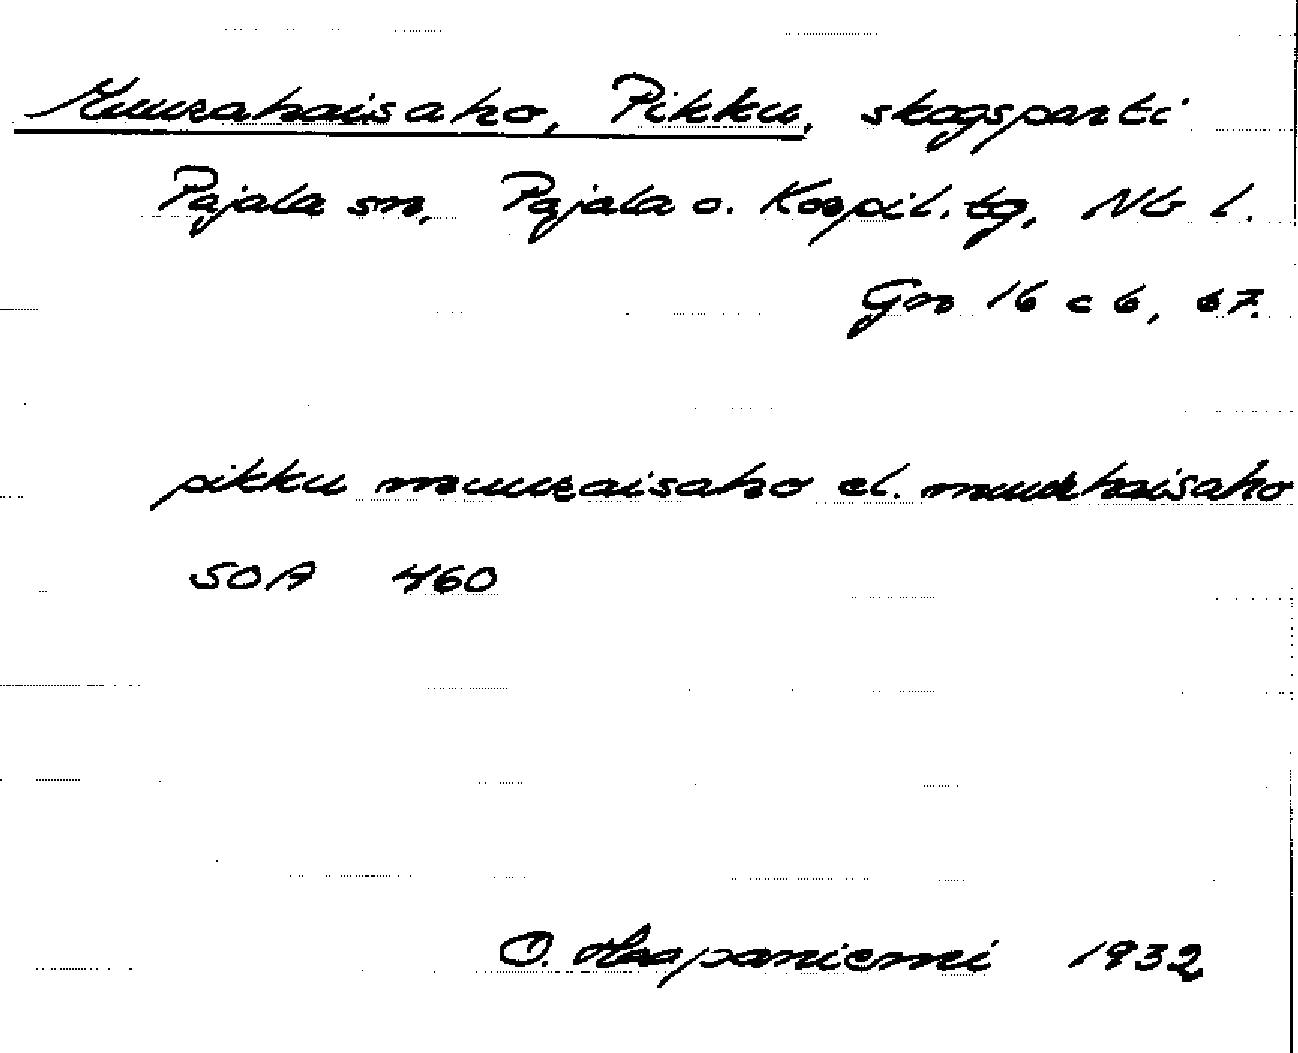 Muurahaisaho, Pikku, skogsparti
Pajala sn, Pajala o. Korpil. tg, Nb l.
Gn 16 c 6, 67.
pikku muuraisaho el. muurhaisaho
SOA 460
O. Haapaniemi 1932